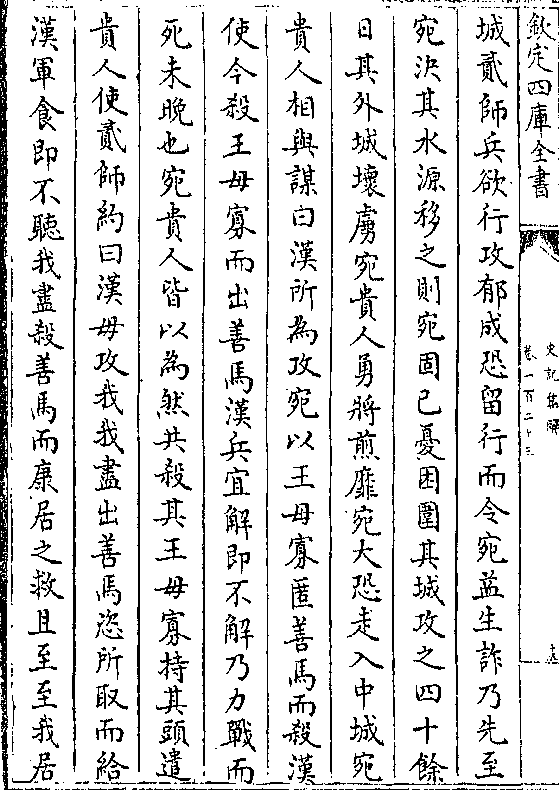 欽定四庫全書
史記集解
卷一百二十三
城貳師兵欲行攻郁成恐留行而令宛益生詐乃先至
宛決其水源移之則宛固已憂困圍其城攻之四十餘
日其外城壞虜宛貴人勇將煎靡宛大恐走入中城宛
貴人相與謀曰漢所為攻宛以王毋寡匿善馬而殺漢
使今殺王毋寡而出善馬漢兵宜解即不解乃力戰而
死未晚也宛貴人皆以為然共殺其王毋寡持其頭遣
貴人使貳師約曰漢毋攻我我盡出善馬恣所取而給
漢軍食即不聽我盡殺善馬而康居之救且至至我居